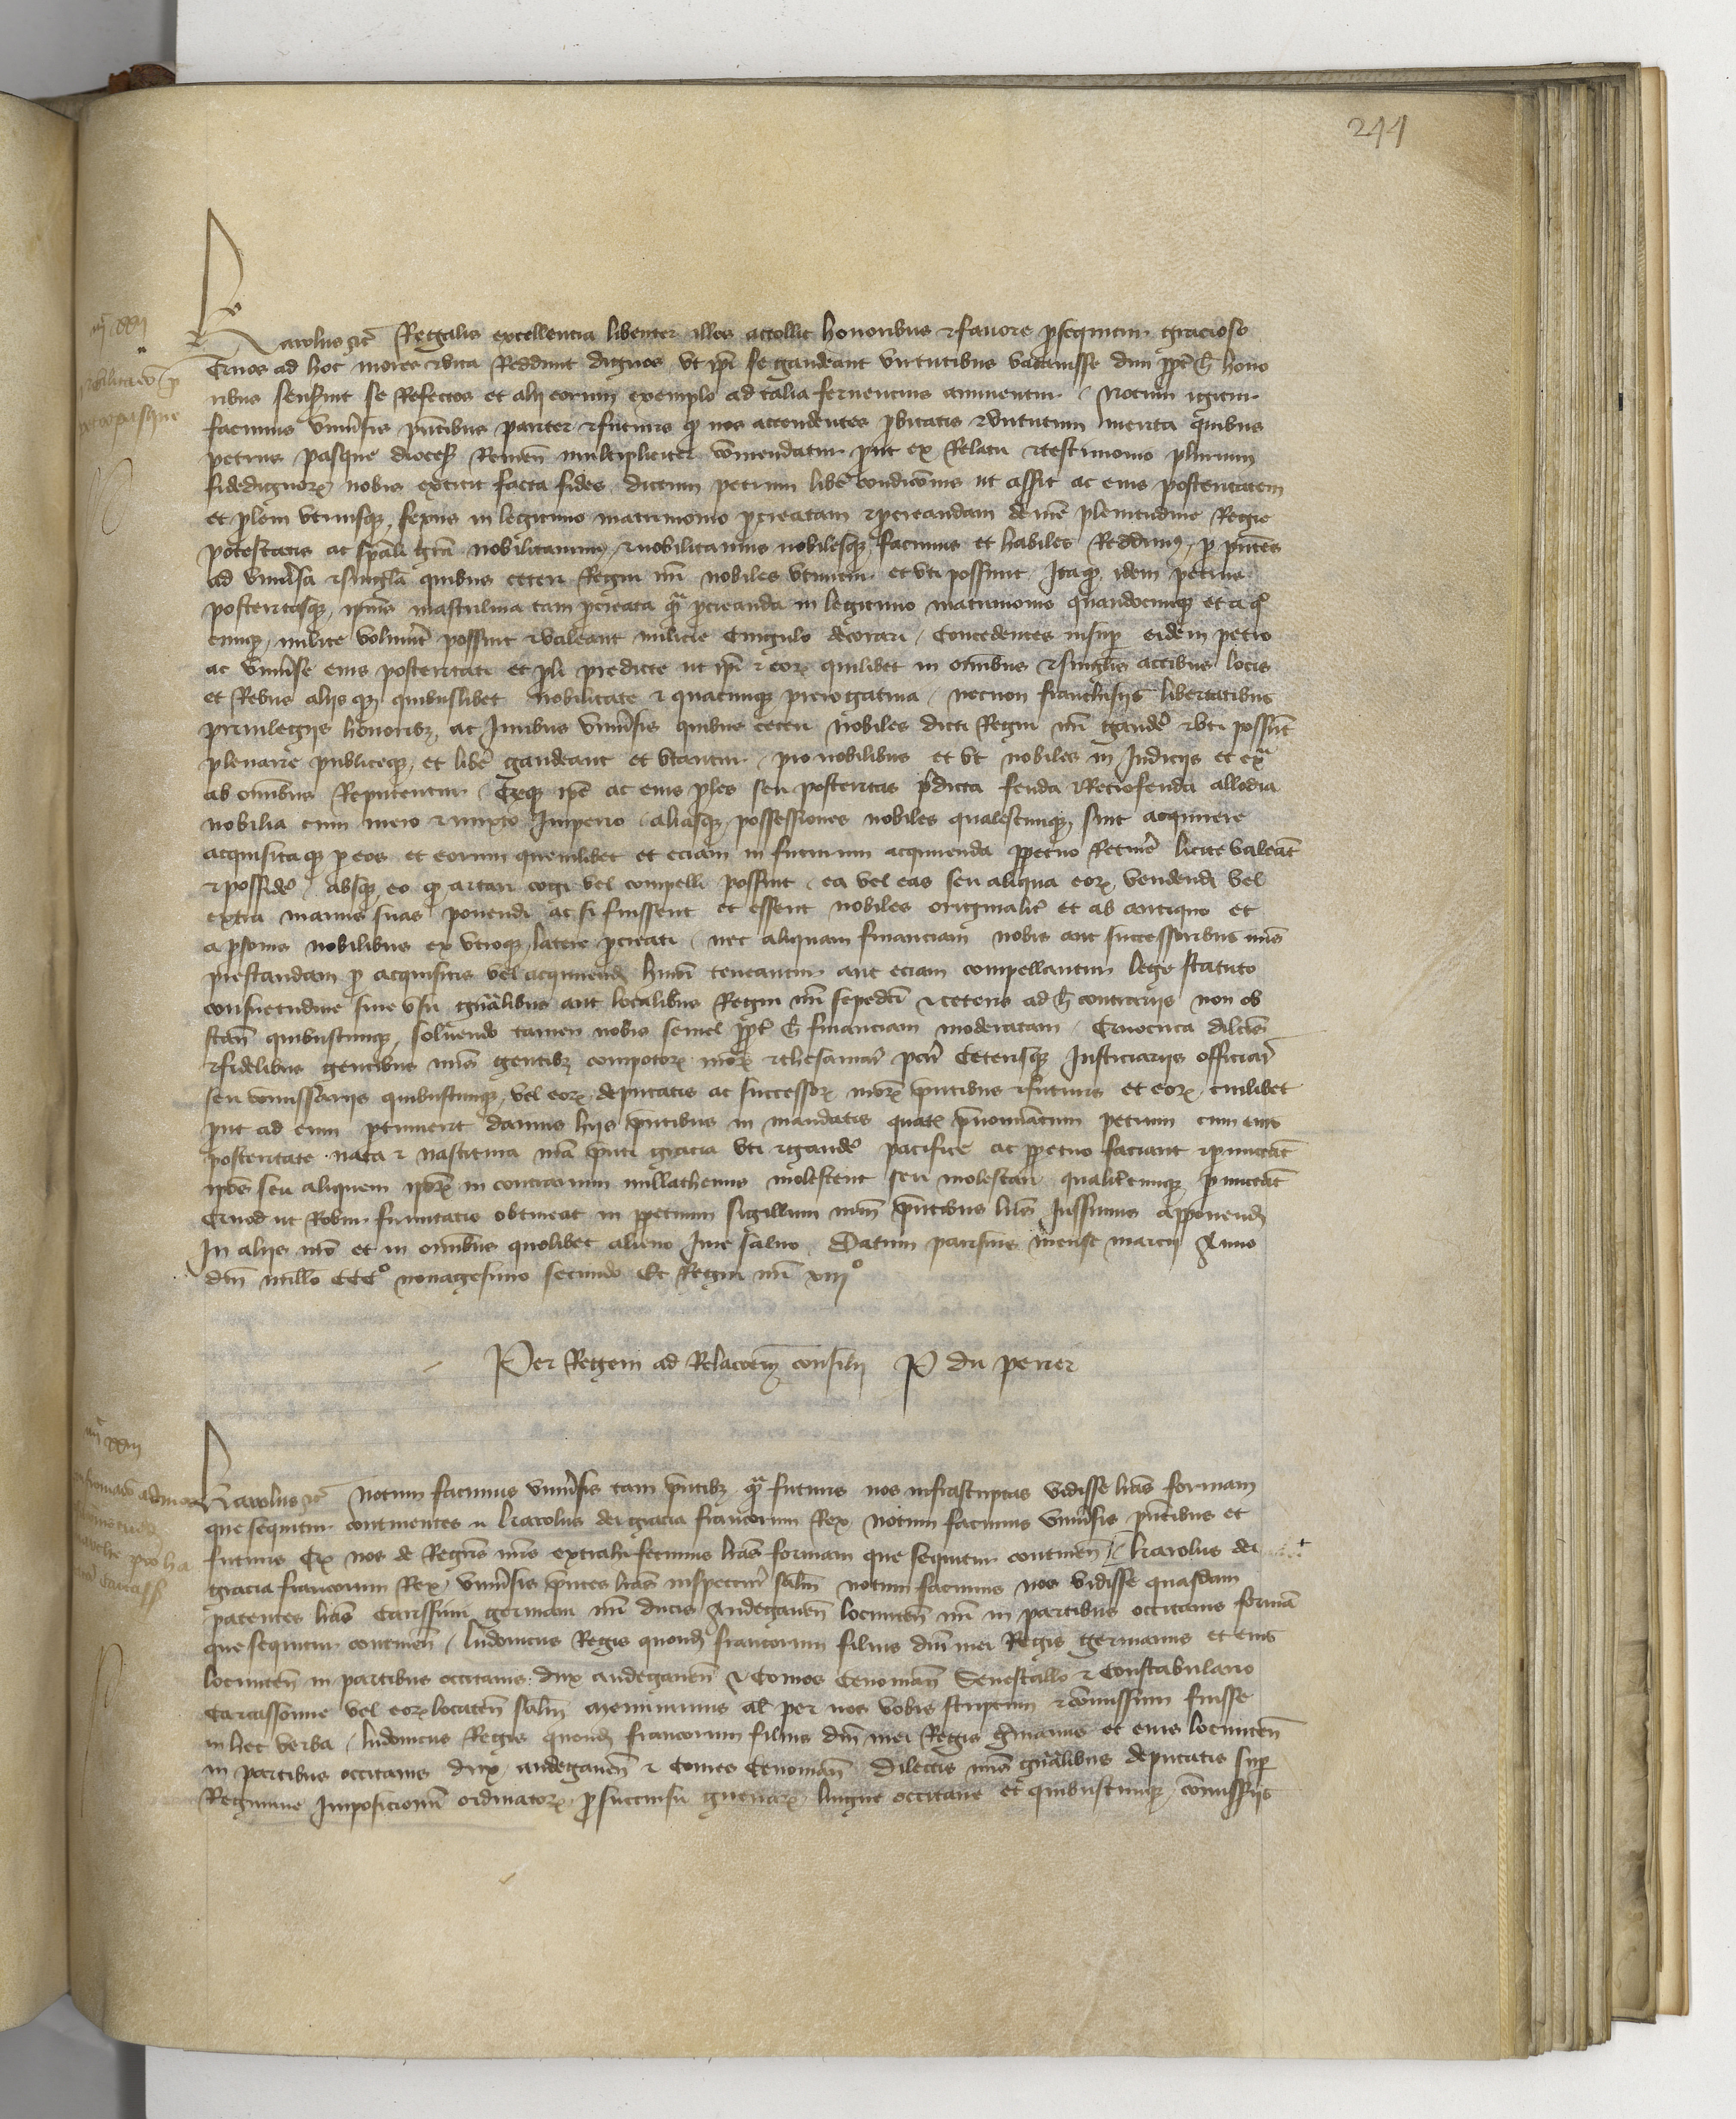 244
Karolus etc̃ Regalis excellencia libenter illos attollit honoribus ⁊ favore ꝓsequitur gracioso
Quos ad hoc mores ⁊ vita Reddunt dignos, vt ip̃i se gaudeant virtutibus vacavisse dum ꝓpt̃ h̃ hono
ribus sen​serint se Refectos et alij eorum exemplo ad talia ferventius animentur. Notum igitur
facimus vniv̉sis pñtibus pariter ⁊ futuris ꝙ nos attendentes ꝓbitatis ⁊ virtutum merita quibus
petrus pasque dioceẜ Remeñ multipliciter com̃endatur ꝓut ex Relatu ⁊ testimonio plurium
fidedignoꝝ nobis extitit facta fides dictum petrum libẽ condic̃onis ut assit ac eius posteritatem
et ꝓlem vtriusqꝫ sexus in legitimo matrimonio ꝓcreatam ⁊ ꝓcreandam de nr̃e plenitudine Regie
potestatis ac sp̃ali gr̃a nobilitamus ⁊ nobilitamus nobilesqꝫ facimus et habiles Reddimꝰ ꝑ p̃ntes
ad vniv̉sa ⁊ singula quibus ceteri Regni nr̃i nobiles vtuntur et vti possunt Itaqꝫ idem petrus
posteritasqꝫ ip̃ius masculina tam ꝓcreata qª̃ ꝓcreanda in legitimo matrimonio quandocumqꝫ et a qͦ
cumqꝫ milite voluerint possint ⁊ valeant milicie Cingulo decorari. Concedentes insuꝑ eidem petro
ac vniv̉se eius posteritati et ꝓli predicte ut ip̃i ⁊ eoꝝ quilibet in om̃ibus ⁊ singulis actibus locis
et Rebus alijsqꝫ quibuslibet nobilitate ⁊ quacumqꝫ prerogativa, necnon franchisijs libertatibus
privilegijs honoribꝫ ac Juribus vniv̉sis quibus ceteri nobiles dicti Regni nr̃i gaudẽ ⁊ vti possũt
plenarie publiceqꝫ et libẽ gaudeant et vtantur, pro nobilibus et vt nobiles in Judicijs et exª
ab om̃ibus Reputentur. Qꝫqꝫ ip̃e ac eius ꝓles seu posteritas p̃dicta feuda ⁊ Retrofeuda allodia
nobilia cum mero ⁊ mixto Imperio aliasqꝫ possessiones nobiles qualescumqꝫ sint acquirere
acquisitaqꝫ ꝑ eos et eorum quemlibet et eciam in futurum acquirenda ꝑpetuo Retinẽ licite valeãt
⁊ possidẽ, absqꝫ eo ꝙ artari cogi vel compelli possint, ea vel eas seu aliqua eoꝝ vendendi vel
extra manus suas ponendi ac si fuissent et essent nobiles originalit̃ et ab antiquo et
a ꝑsonis nobilibus ex vtroqꝫ latere ꝓcreati, nec aliquam financiam nobis aut successoribus nr̃is
prestandam ꝓ acquisitis vel acquirendis hmõi teneantur aut eciam compellantur lege statuto
consuetudine sive vsu gñalibus aut localibus Regni nr̃i sepedicti ⁊ ceteris ad h̃ contrarijs non ob
stañ quibuscumqꝫ, solvendo tamen nobis semel ꝓpt̃ h̃ financiam moderatam. Quocirca dilc̃is
⁊ fidelibus gentibus nr̃is gentibꝫ compotoꝝ nr̃oꝝ ⁊ thesaurar̃ parĩ Ceterisqꝫ Justiciarijs officiar̃
seu com̃issarijs quibuscumqꝫ vel eoꝝ deputatis ac successoꝝ nr̃oꝝ pñtibus ⁊ futuris et eoꝝ cuilibet
ꝓut ad eum ꝑtinuerit damus hijs pñtibus in mandatis quatꝫ p̃nominatum petrum cum eius
posteritate nata ⁊ nascitura nr̃a pñti gracia vti ⁊ gaudẽ pacifice ac ꝑpetuo faciant ⁊ ꝑmittãt
ip̃os seu aliquem ip̃oꝝ in contrarium nullathenus molestent seu molestari qualit̃cumqꝫ ꝑmittãt
Quod ut Robur firmitatis obtineat in ꝑpetuum sigillum nr̃m pñtibus lr̃is Jussimus apponendum
In alijs nr̃o et in om̃ibus quolibet alieno Jure salvo. Datum parisius mense marcij Anno
dñi mill̃o CCCͦ nonagesimo secundo Et Regni nr̃i xiijͦ
Per Regem ad Relac̃oem consilij P du perier
Karolus etc̃ Notum facimus vniv̉sis tam pñtibꝫ qª̃ futuris nos infrascriptas vidisse lr̃as formam
que sequitur continentes. Karolus dei gracia francorum Rex Notum facimus vniv̉sis pñtibus et
futuris Qꝫ nos de Regris nr̃is extrahi fecimus lr̃as formam que sequitur continen̄. Karolus dei
gracia francorum Rex, vniv̉sis pñtes lr̃as inspecturis sal̃m Notum facimus nos vidisse quasdam
patentes lr̃as Carissimi germani nr̃i ducis Andegaveñ locumteñ nr̃i in partibus occitanis formã
que sequitur contineñ, ludovicus Regis quondã francorum filius dñi mei Regis germanus et eius
locumteñ in partibus occitanis dux andegaveñ ⁊ Comes Cenomañ Senescallo ⁊ Constabulario
Carcassonne vel eoꝝ locateñ sal̃m meminimus al̃s per nos vobis scriptum ⁊ com̃issum fuisse
in hec verba, ludovicus Regis quondã francorum filius dñi mei Regis g̃manus et eius locumteñ
in partibus occitanis dux andegaveñ ⁊ Comes Cenomañ Dilectis nr̃is gñalibus deputatis suꝑ
Regimine Imposicionũ ordinatoꝝ ꝓ succursu guerraꝝ lingue occitane et quibuscumqꝫ com̃issarijs